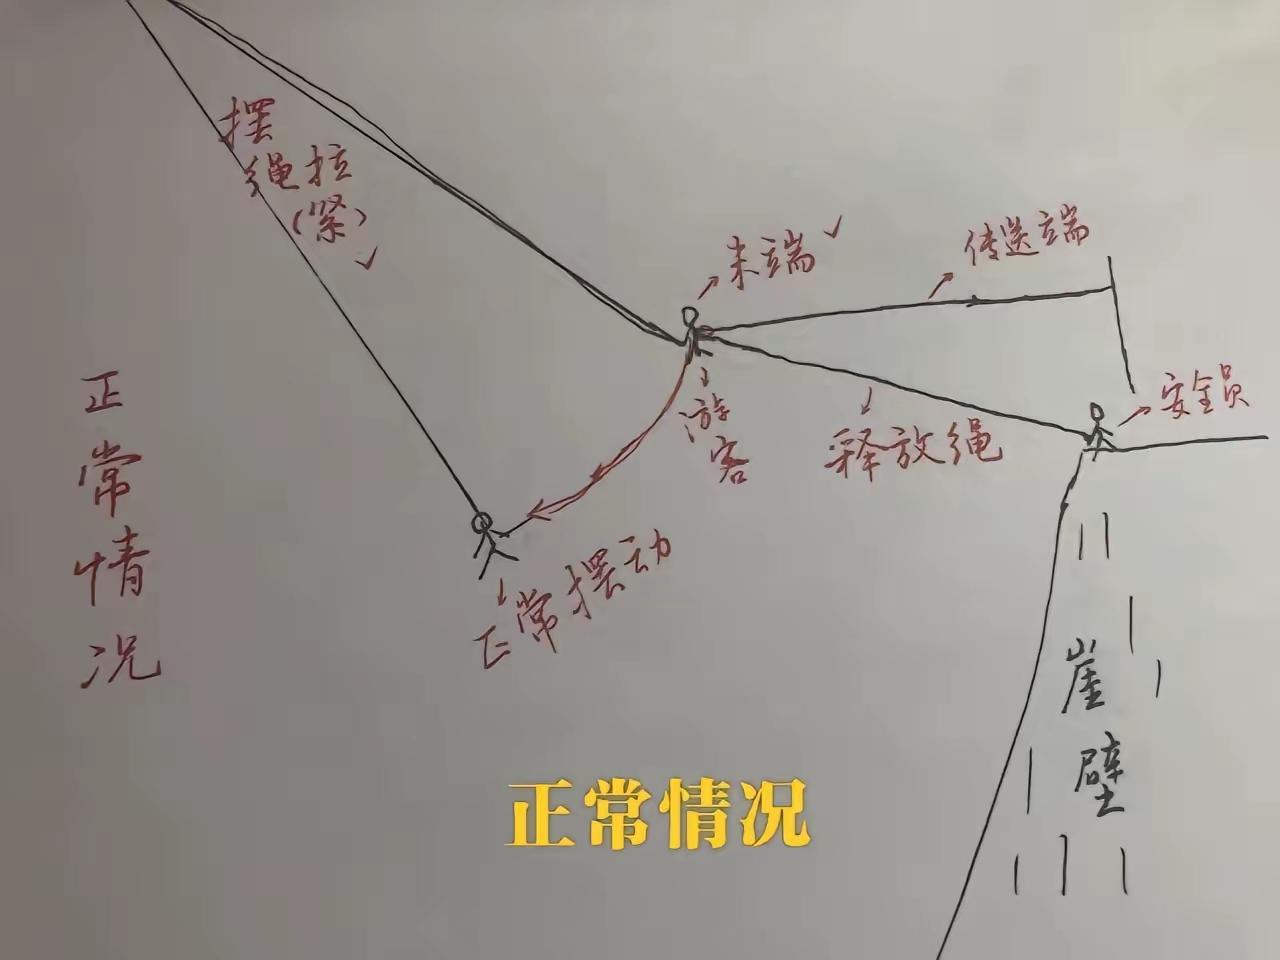 摆
绳拉
(紧)
末端
传送端
游
客
释放绳
安全员
正
常
情
况
正常摆动
崖
壁
正常情况